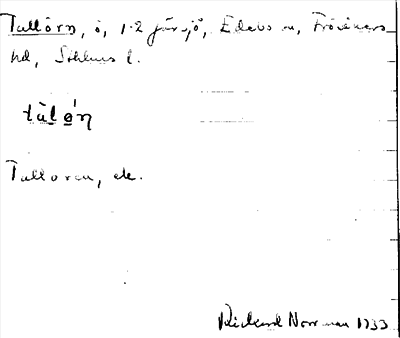 Tallörn, ö, 1·2 järsjö, Edebo sn, Frösåkers
hd, Sthlms l.
tàlǿn
Talloren, ele.
Rickard Norrman 1933